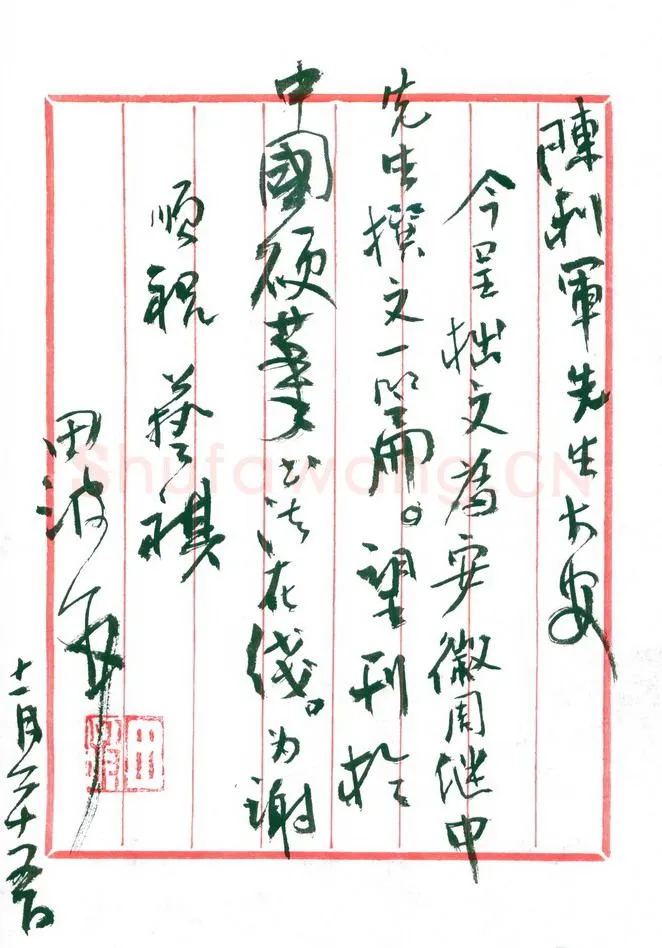 陳利軍先生大安
今呈拙文為安徽周继中
先生撰文一篇。望刊於
中國硬筆书法在线。为謝
順祝 藝祺
田波
十一月二十五日
Shufawang.CN